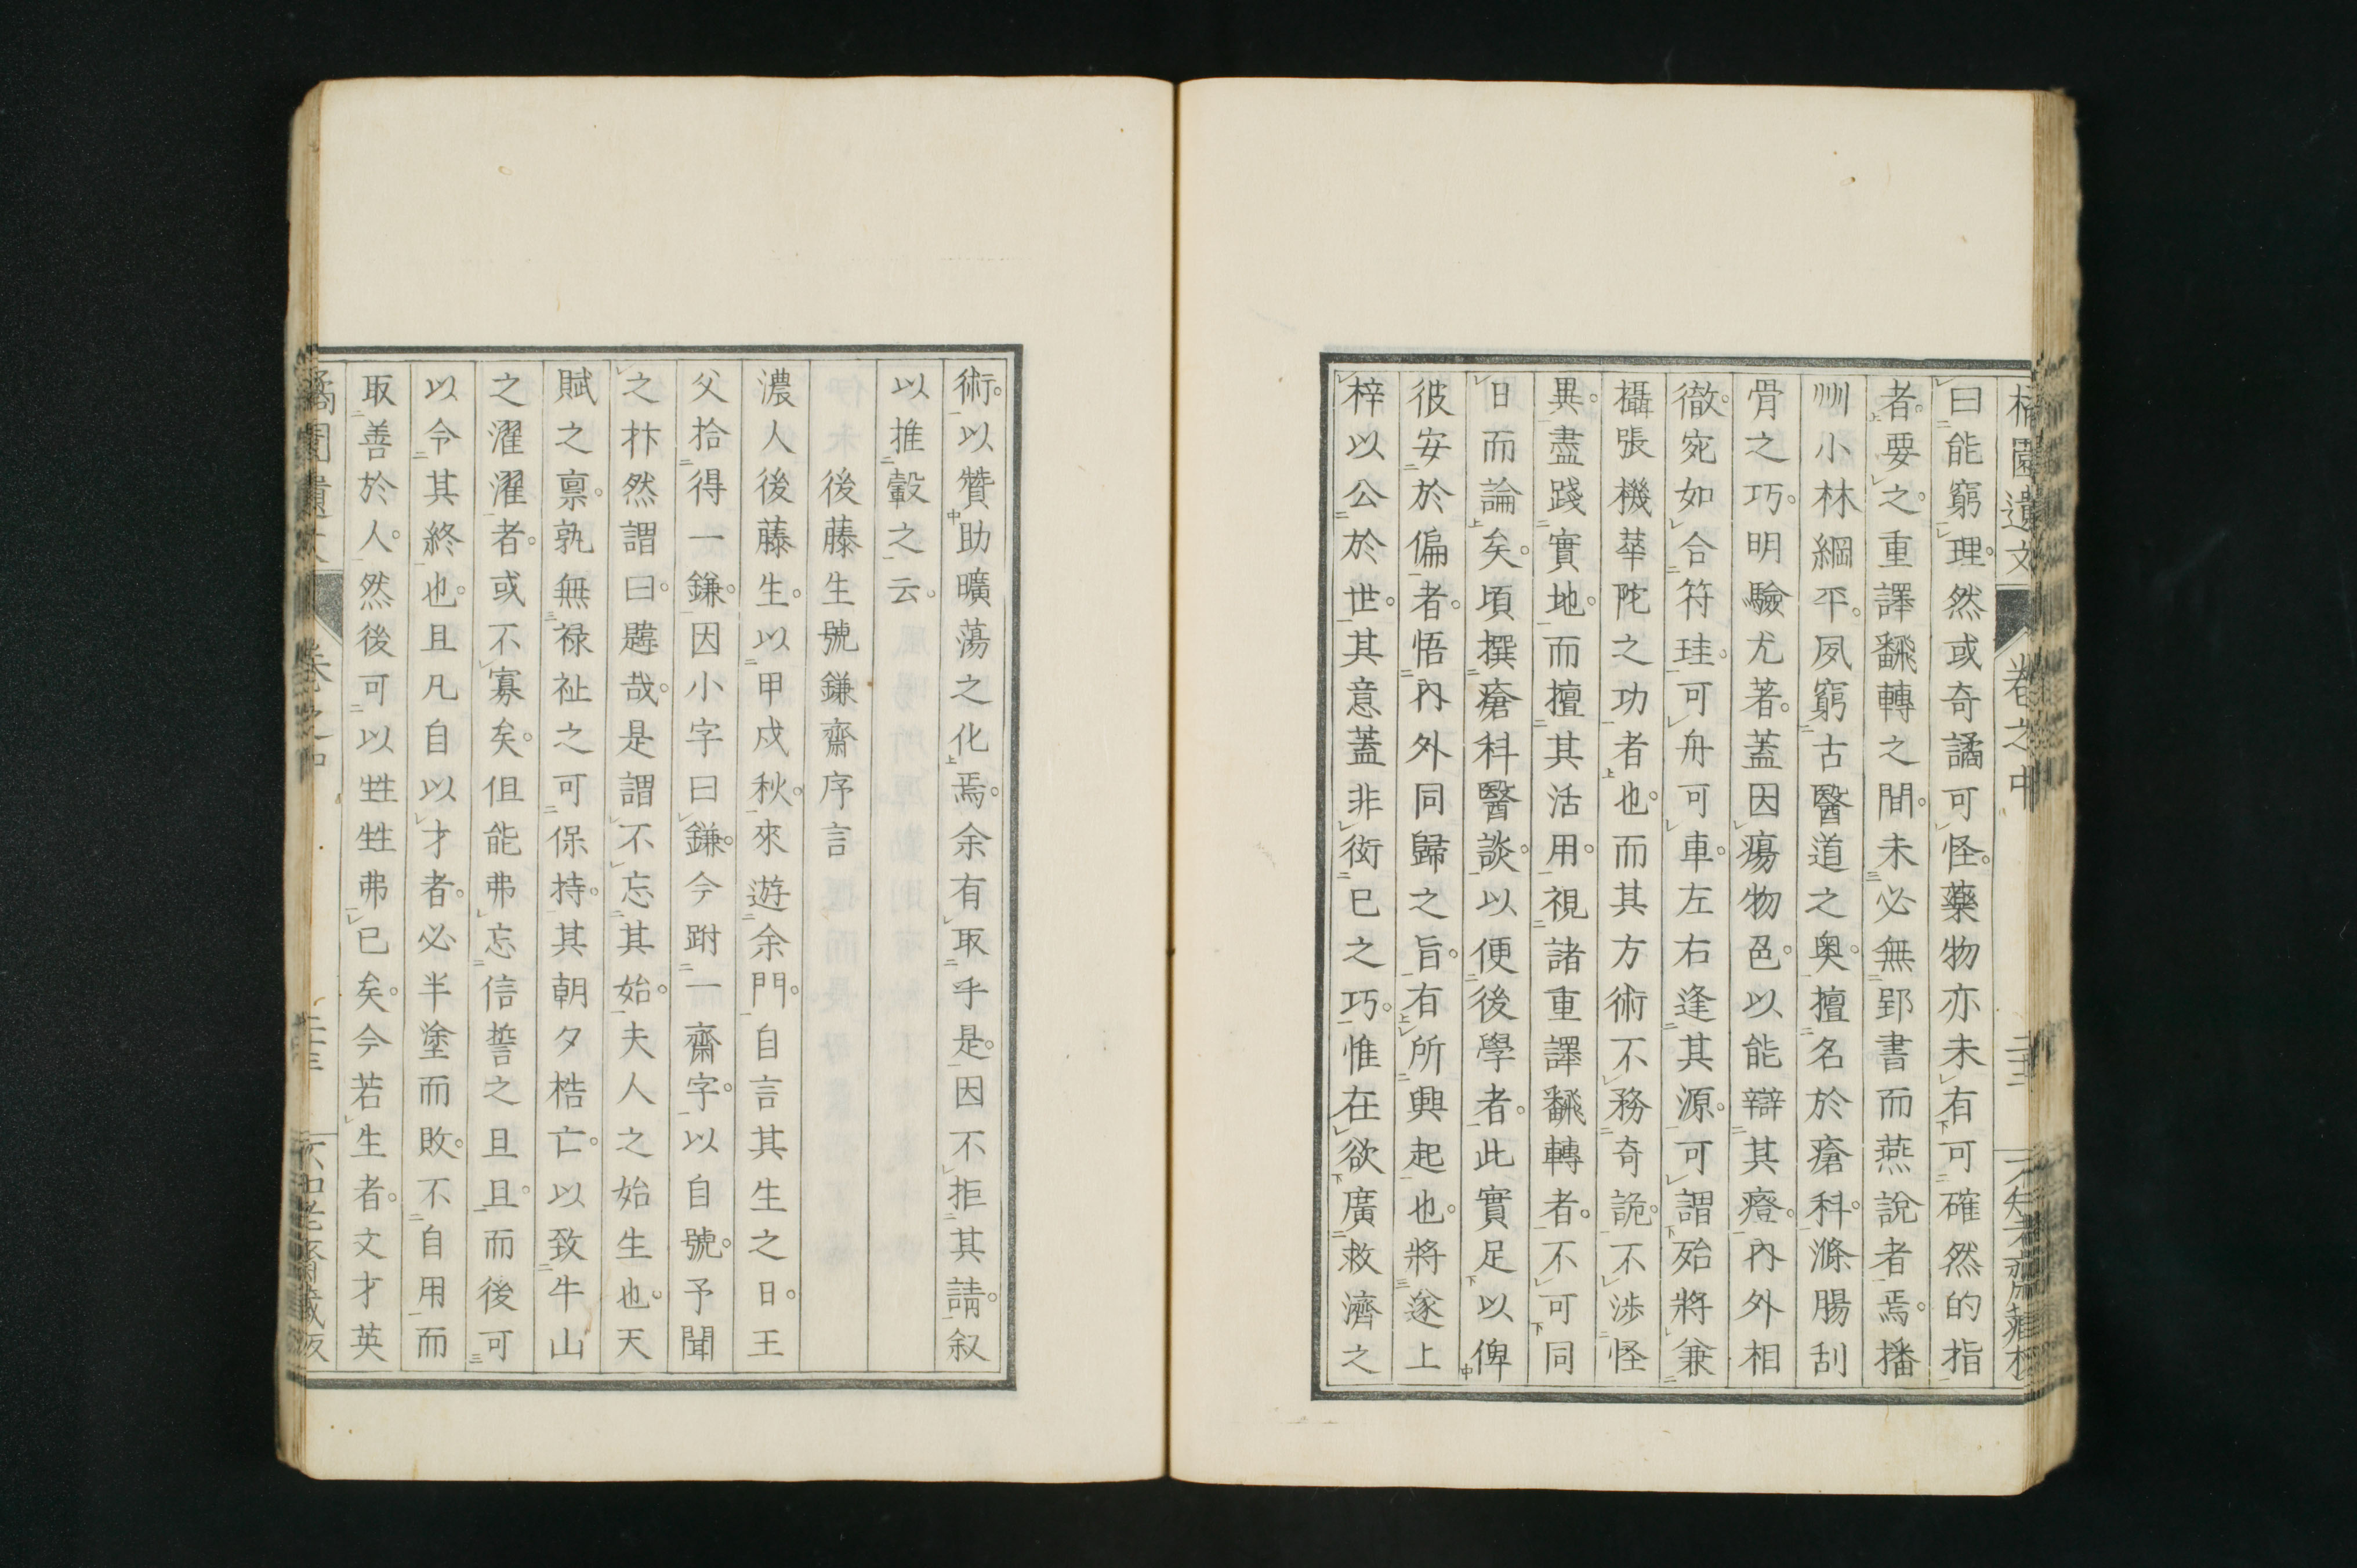 橘園遺文 卷之中 二十二
曰能窮理。然或奇譎可怪。藥物亦未有可確然的指
者。要之。重譯飜轉之間。未必無郢書而燕說者焉。播
州小林綱平。夙窮古醫道之奧。擅名於瘡科。滌腸刮
骨之巧。明驗尤著。蓋因瘍物色。以能辯其癥。內外相
徹。宛如合符珪。可舟可車。左右逢其源。可謂殆將兼
攝張機華陀之功者也。而其方術不務奇詭。不渉怪
異。盡踐實地。而擅其活用。視諸重譯飜轉者。不可同
日而論矣。頃撰瘡科醫談。以便後學者。此實足以俾
彼安於偏者。悟內外同歸之旨。有所興起也。將遂上
梓以公於世。其意蓋非衒已之巧。惟在欲廣救濟之
術。以贊助曠蕩之化焉。余有取乎是。因不拒其請。叙
以推轂之云。
後藤生號鎌齋序言
濃人後藤生。以甲戌秋。來遊余門。自言其生之日。王
父拾得一鎌。因小字曰鎌。今跗一齋字。以自號。予聞
之抃然謂曰。韙哉。是謂不忘其始。夫人之始生也。天
賦之禀。孰無禄祉之可保持。其朝夕梏亡。以致牛山
之濯濯者。或不寡矣。但能弗忘信誓之旦旦。而後可
以令其終也。且凡自以才者。必半塗而敗。不自用而
取善於人。然後可以甡甡弗已矣。今若生者。文才英
橘園遺文 卷之中